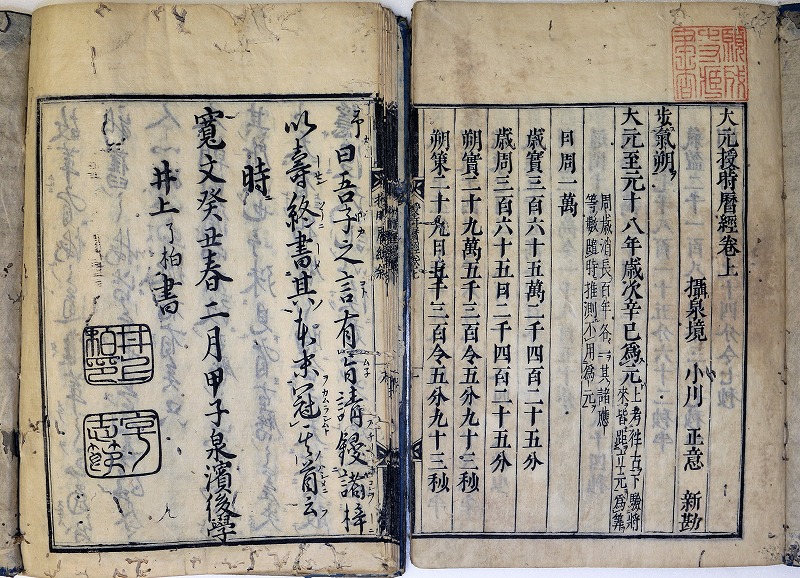 大元授時曆經卷上
攝泉境 小川 正意 新勘
步氣朔
大元至元十八年歲次辛巳爲元
上考徃古下驗將
來皆距立元爲筭
周歲消長百年各一其諸應
等數隨時推測不用爲元
日周一萬
歲實三百六十五萬二千四百二十五分
歲周三百六十五日二千四百二十五分
朔實二十九萬五千三百令五分九十三秒
朔策二十九日五千三百令五分九十三秒
予曰吾子之言有旨請鋟諸梓
以壽終書其本末冠其首云
時
寬文癸丑春二月甲子泉濱後學
井上了柏書